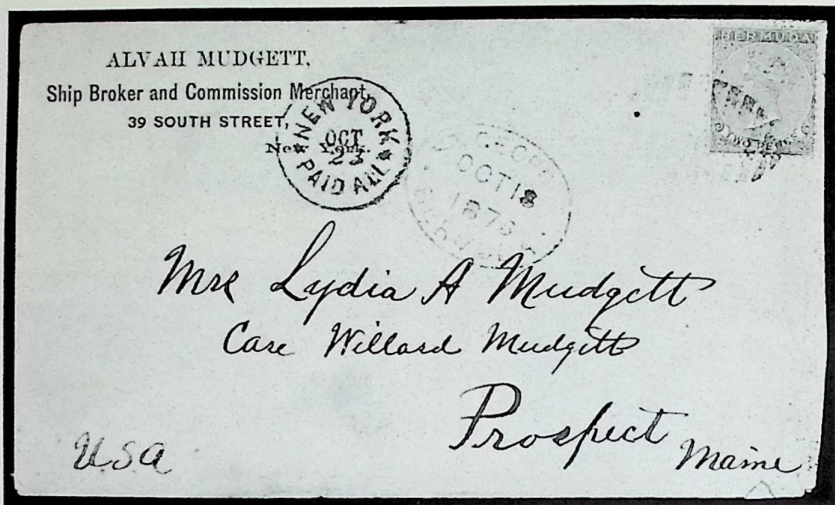 ALVAH MUDGETT,
Ship Broker and Commission Merchant,
39 SOUTH STREET,
New York.
NEW YORK
OCT
23
PAID ALL
OCT 18
BERMUDA
TWO PENCE
Mrs Lydia A Mudgett
Care Willard Mudgett
Prospect
Maine
USA